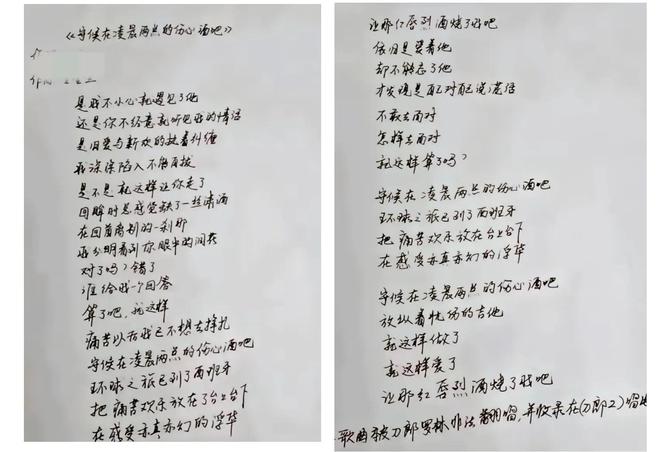 《守候在凌晨两点的伤心酒吧》
是我不小心就遇见了他
还是你不经意就听见我的情话
是旧爱与新欢的执着纠缠
我深深陷入不能自拔
是不是就这样让你走了
回眸时总感觉缺了一丝清洒
在回首离别的一刹那
我分明看到你眼中的泪花
对了吗？错了
谁给我一个回答
算了吧，就这样
痛苦以后我已不想去挣扎
守候在凌晨两点的伤心酒吧
环球之旅已到了西班牙
把痛苦欢乐放在了台上台下
在感受亦真亦幻的浮华
让那红唇烈酒烧了我吧
依旧是爱着他
却不能忘了他
才发现是自己对自己说谎话
不敢去面对
怎样去面对
就这样算了吗？
守候在凌晨两点的伤心酒吧
环球之旅已到了西班牙
把痛苦欢乐放在台上台下
在感受亦真亦幻的浮华
守候在凌晨两点的伤心酒吧
放纵着忧伤的吉他
就这样做了
就这样爱了
让那红唇烈酒烧了我吧
歌曲被刀郎罗林非法翻唱，并收录在(刀郎2)唱